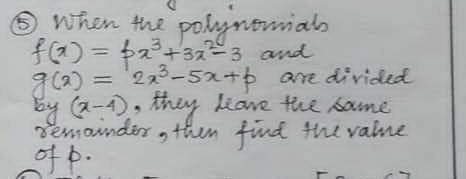 ⑤ When the polynomials
f(x) = px³+3x²-3 and
g(x) = 2x³-5x+p are divided
by (x-4), they leave the same
remainder, then find the value
of p.